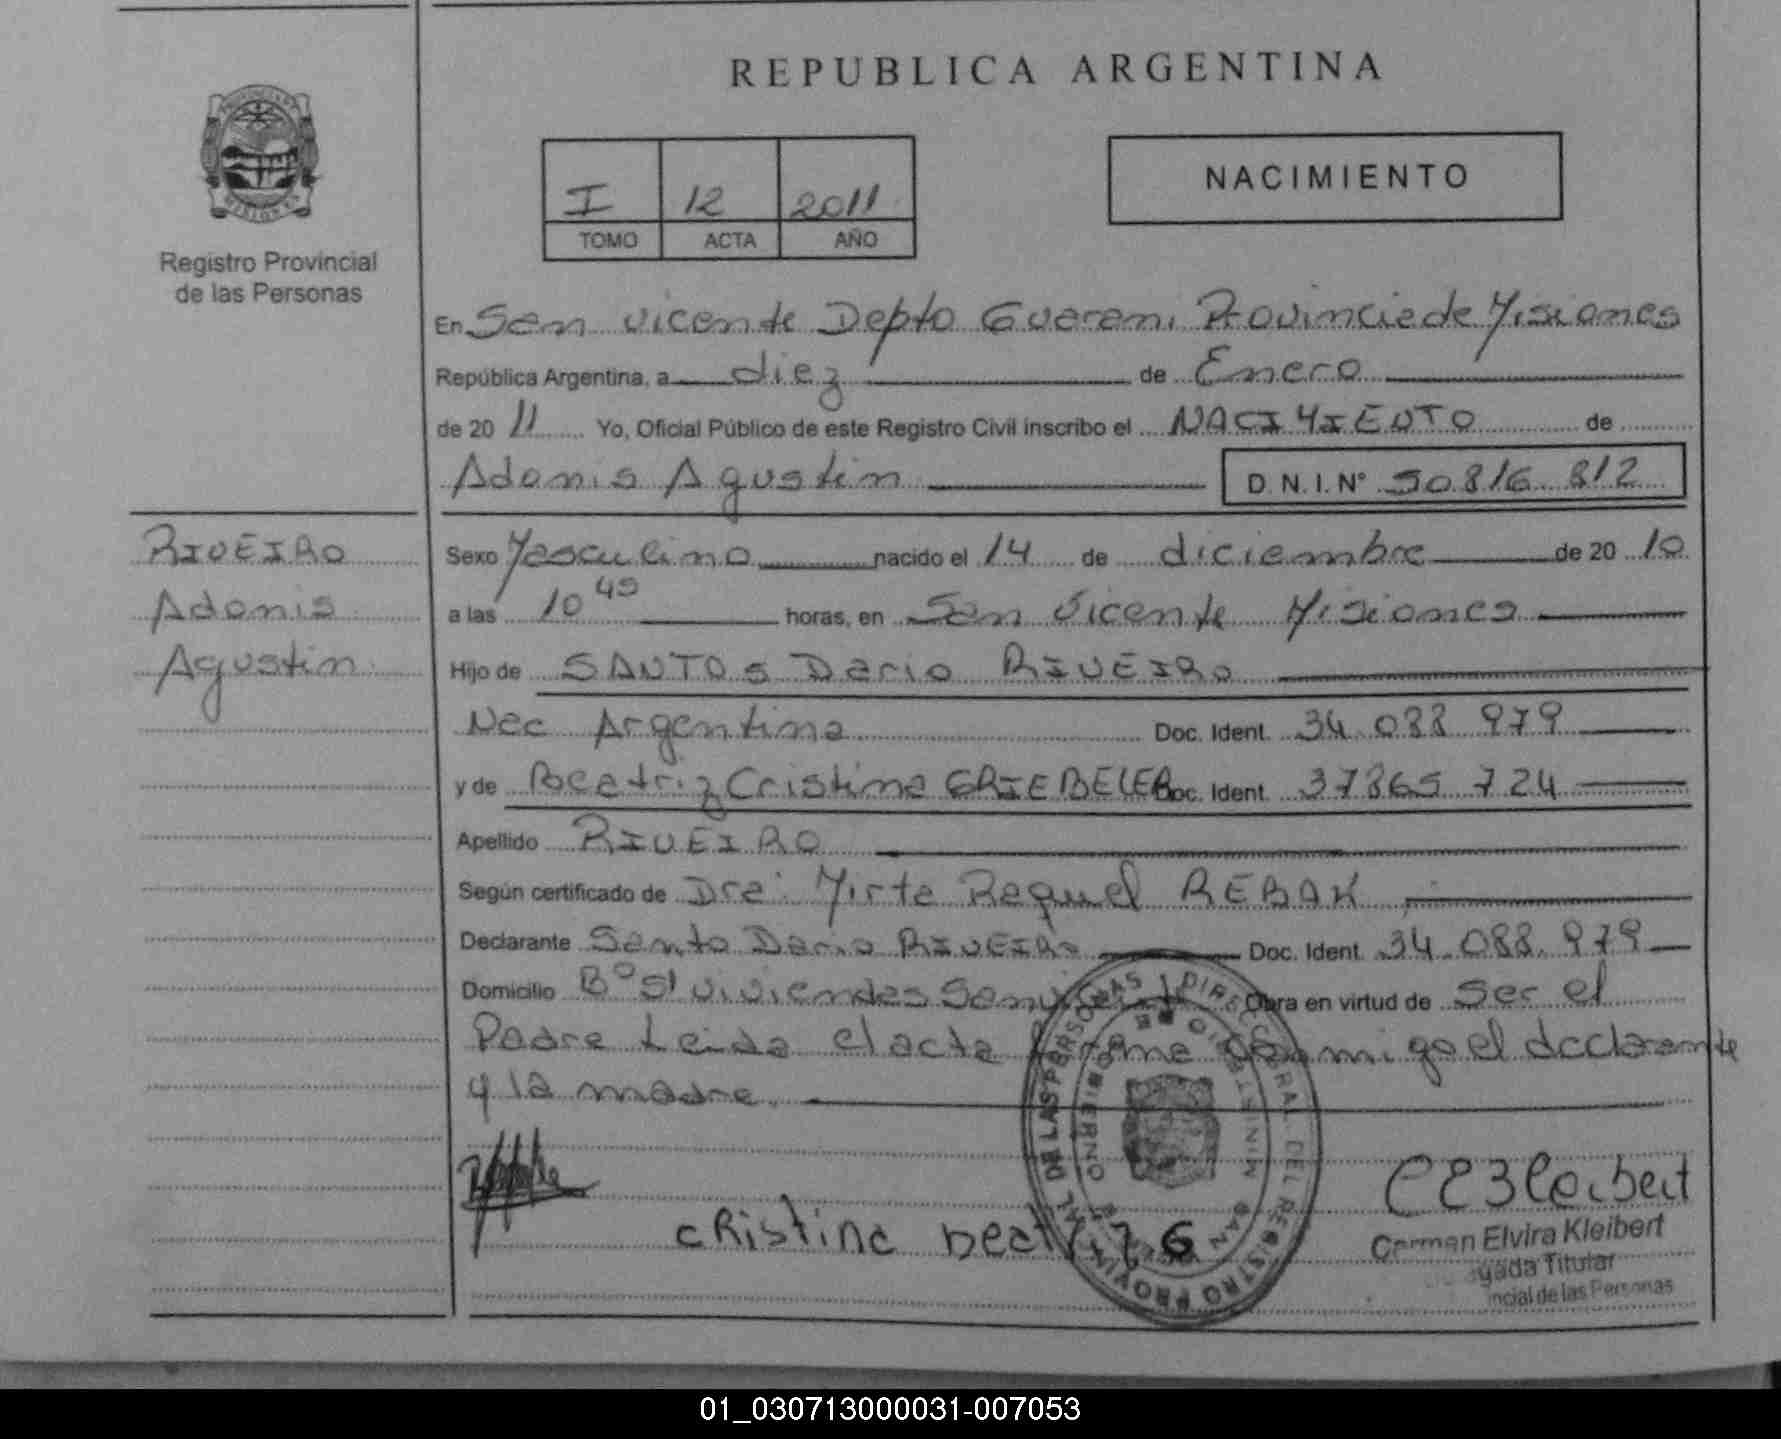 REPUBLICA ARGENTINA
I 12 2011
TOMO ACTA AÑO
NACIMIENTO
Registro Provincial
de las Personas
En San Vicente Depto Guarani Provincia de Misiones
República Argentina, a diez de Enero
de 20 11 Yo, Oficial Público de este Registro Civil inscribo el NACIMIENTO de
Adonis Agustin D.N.I. N° 50 816 812
RIVEIRO
Adonis
Agustin
Sexo Masculino nacido el 14 de diciembre de 20 10
a las 10 45 horas, en San Vicente Misiones
Hijo de SANTOS Dario RIVEIRO
Nac Argentina Doc. Ident. 34.088.979
y de Beatriz Cristina GRIEBELER Doc. Ident. 37865 724
Apellido RIVEIRO
Según certificado de Dra: Mirta Raquel REBAK
Declarante Santo Dario RIVEIRO Doc. Ident. 34.088.979
Domicilio B° 51 viviendas San Vicente Obra en virtud de Ser el
Padre Leida el acta firma conmigo el declarante
y la madre.
cRistina beatriz G
DIREC. GRAL DEL REGISTRO PROVINCIAL DE LAS PERSONAS
MINISTERIO DE GOBIERNO
CEKleibert
Carmen Elvira Kleibert
Titular
de las Personas
01_030713000031-007053